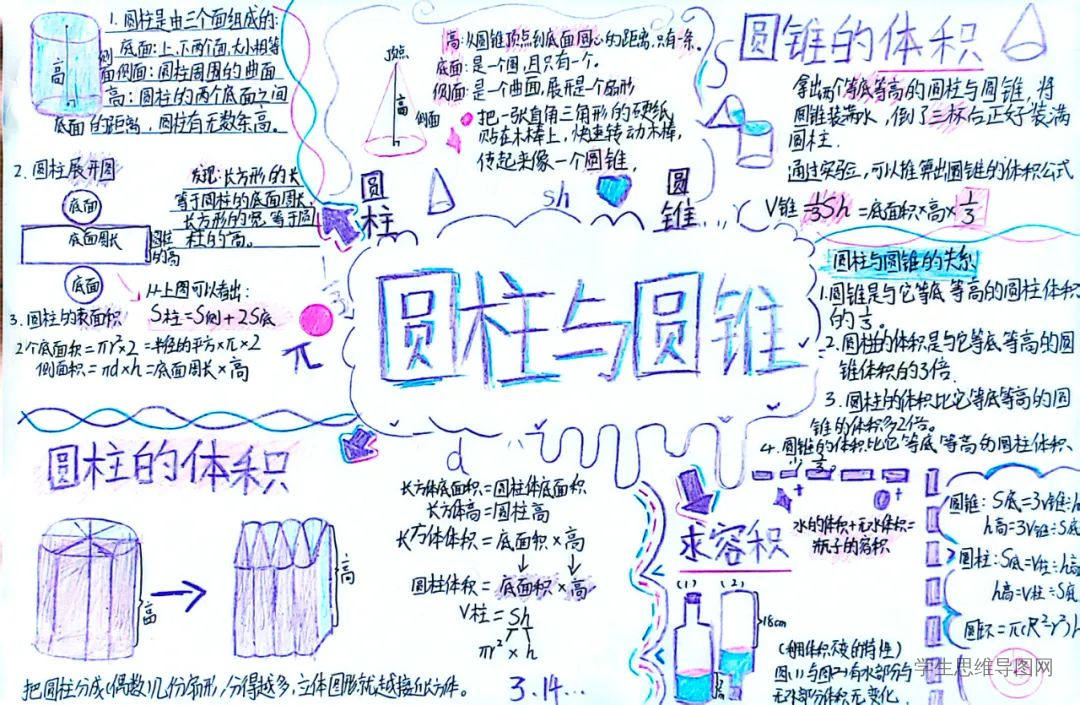 1. 圆柱是由三个面组成的:
底面:上、下两个面,大小相等
侧面:圆柱周围的曲面
高:圆柱的两个底面之间
的距离,圆柱有无数条高。
高
底面
侧面
2. 圆柱展开图
底面
底面周长
圆柱的高
底面
发现:长方形的长
等于圆柱的底面周长,
长方形的宽,等于圆
柱的高。
从上图可以看出:
3. 圆柱的表面积
S柱=S侧+2S底
2个底面积=πr²×2=半径的平方×π×2
侧面积=πd×h=底面周长×高
顶点
高
侧面
底面
高:从圆锥顶点到底面圆心的距离,只有一条。
底面:是一个圆,且只有一个。
侧面:是一个曲面,展开是一个扇形
把一张直角三角形的硬纸,
贴在木棒上,快速转动木棒,
像一个圆锥,
圆柱
sh
圆锥...
圆锥的体积
拿出两个等底等高的圆柱与圆锥,将
圆锥装满水,倒了三杯后正好装满
圆柱.
通过实验,可以推算出圆锥的体积公式
V锥=1/3Sh=底面积×高×1/3
圆柱与圆锥
π
d
圆柱与圆锥的关系
1.圆锥是与它等底等高的圆柱体积
的1/3。
2.圆柱的体积是与它等底等高的圆
锥体积的3倍.
3.圆柱的体积比它等底等高的圆
锥的体积多2倍。
4.圆锥的体积比它等底等高的圆柱体积、
少2/3。
圆柱的体积
高
高
把圆柱分成(偶数)几份扇形,分得越多,立体图形就越接近长方体。
长方体底面积=圆柱体底面积
长方体高=圆柱高
长方体体积=底面积×高
圆柱体积=底面积×高
V柱=Sh
πr²×h
3.14...
求容积
水的体积+无水体积=
瓶子的容积
(1) (2)
18cm
图(1)与图(2)有水部分与
无水部分体积无变化.
圆锥:S底=3V锥÷h
h高=3V锥÷S底
圆柱:S底=V柱÷h高
h高=V柱÷S底
圆环=π(R²-r²)h
学生思维导图网